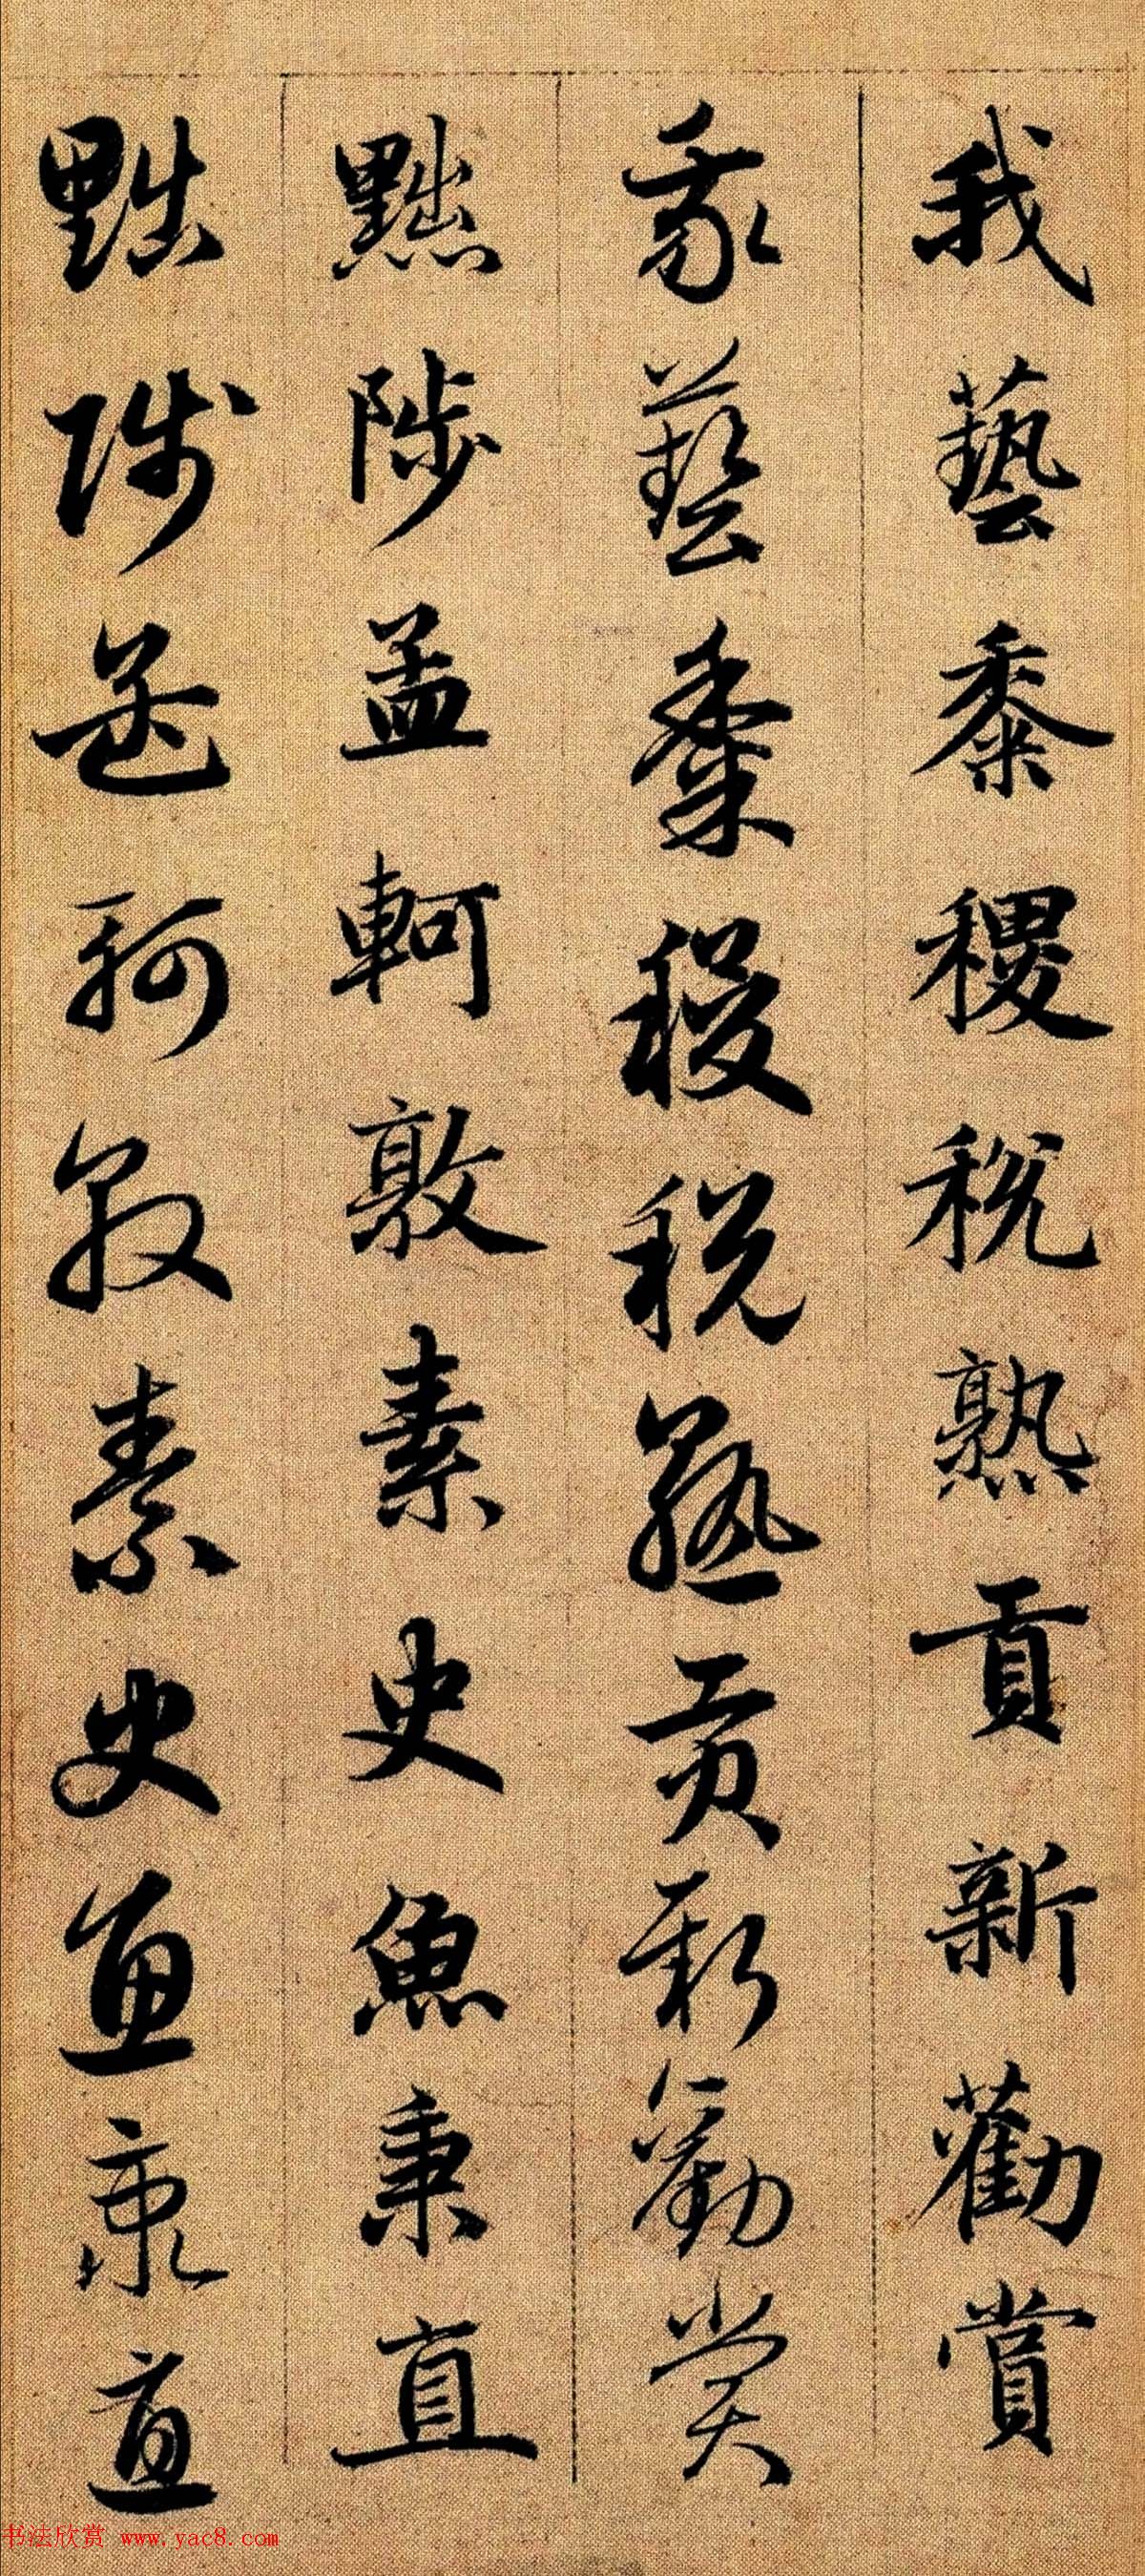 我藝黍稷稅熟貢新勸賞
我藝黍稷稅熟貢新勸賞
黜陟孟軻敦素史魚秉直
黜陟孟軻敦素史魚秉直
书法欣赏 www.yac8.com